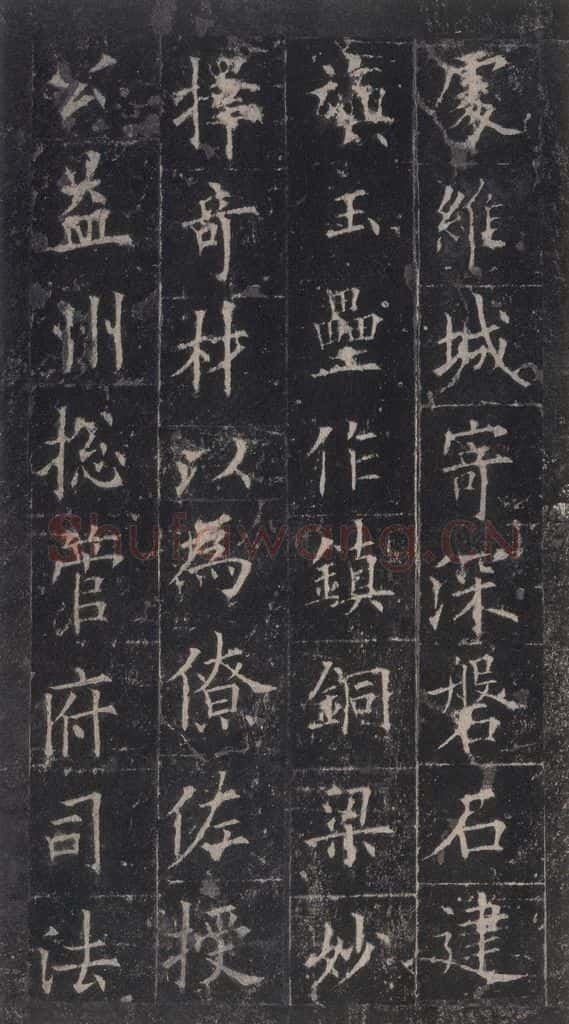 處維城寄深磐石建
旟玉壘作鎮銅梁妙
擇奇材以為僚佐授
公益州揔管府司法
Shufawang.CN